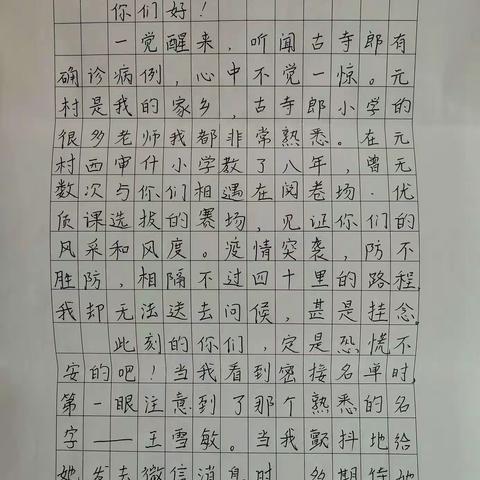 你们好！
一觉醒来，听闻古寺郎有
确诊病例，心中不觉一惊。元
村是我的家乡，古寺郎小学的
很多老师我都非常熟悉。在元
村西审什小学教了八年，曾无
数次与你们相遇在阅卷场．优
质课选拔的赛场，见证你们的
风采和风度。疫情突袭，防不
胜防，相隔不过四十里的路程，
我却无法送去问候，甚是挂念。
此刻的你们，定是恐慌不
安的吧！当我看到密接名单时，
第一眼注意到了那个熟悉的名
字——王雪敏。当我颤抖地给
她发去微信消息时，多期待她